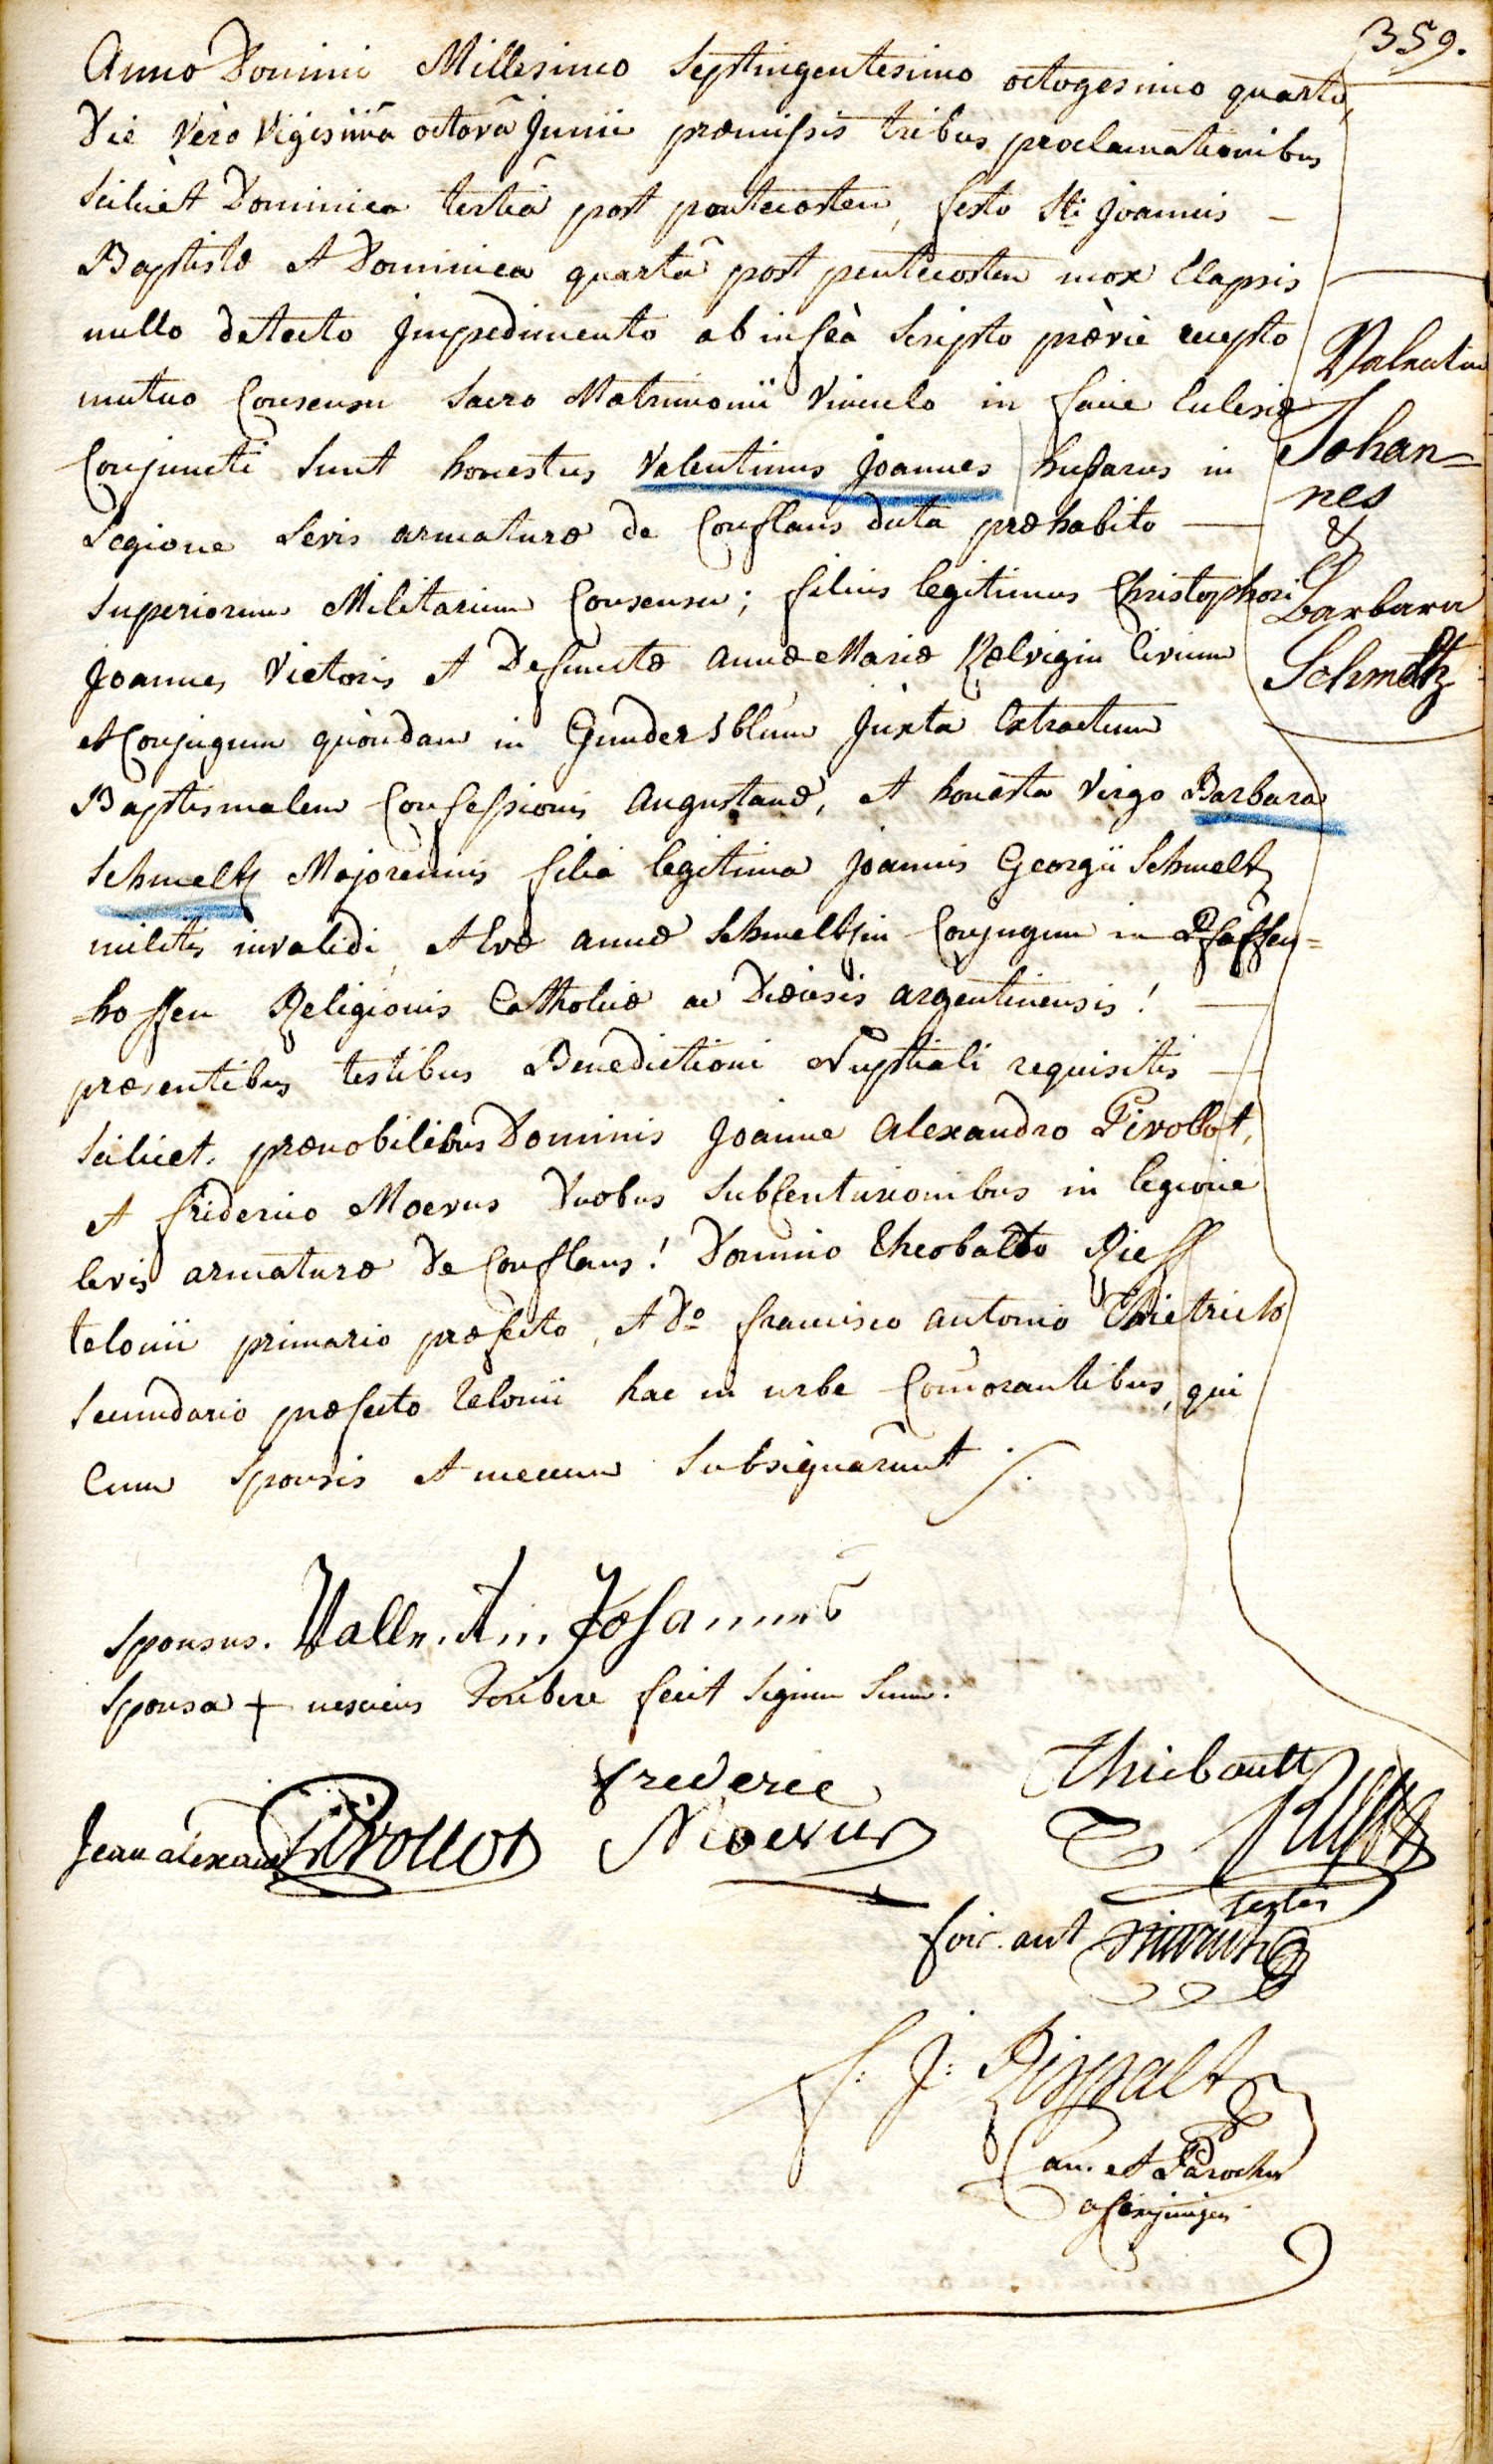 359.
Anno Domini Millesimo Septingentesimo octogesimo quarto,
Die Vero Vigesimâ octavâ Junii præmissis tribus proclamationibus
Scilicet Dominica tertiâ post pentecosten, festo Sti Joannis –
Baptistæ et Dominica quartâ post pentecosten mox Elapsis
nullo detecto Jmpedimento ab infrà Scripto prævie recepto
mutuo Consensu Sacro Matrimonii Vinculo in facie Eclesiæ
Conjuncti Sunt honestus Valentinus Joannes husarus in
Legione Levis armaturæ de Conflans dicta præhabito —
Superiorum Militarium Consensu; filius legitimus Christophori
Joannes Victoris et Defunctæ annæ Mariæ Civium
et Conjugum quondam in Gundersblum Juxta Extractum
Baptismalem Confessionis augustanæ, et honesta Virgo Barbara
Schmeltz Majorennis filia legitima Joannis Georgii Schmeltz
militis invalidi, et Evæ annæ Schmeltzin Conjugum in Pfaffen=
=hoffen Religionis Catholicæ ac Diœcesis argentinensis! —
præsentibus testibus Benedictioni Nuptiali requisitis —
Scilicet. prænobilibus Dominis Joanne Alexandro Pirollot,
et friderico Moevus Duobus SubCenturionibus in legione
levis armaturæ de Conflans! Domino Theobaldo Rieff
telonii primario præfecto, et Do francisco antonio Thietrich
Secundario præfecto telonii hac in urbe Comorantibus, qui
Cum Sponsis et mecum Subsignârunt ./.
Valentin
Johan=
nes
&
Barbara
Schmeltz
Sponsus. Vallentin Johannes
Sponsa + nesciens Scribere fecit Signum Suum.
frederic
Moevus
Thiebautt
Rieff
Jean alexand Pirollot
testes
ant
f: J: Rippalt
Can. et Parochus